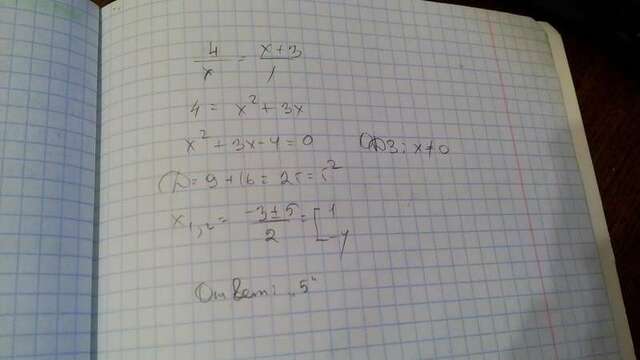 4/x = x+3/1
4 = x² + 3x
x² + 3x - 4 = 0 ОДЗ: x ≠ 0
D = 9 + 16 = 25 = 5²
x₁,₂ = -3±5/2 = [1
-4
Ответ: „5"